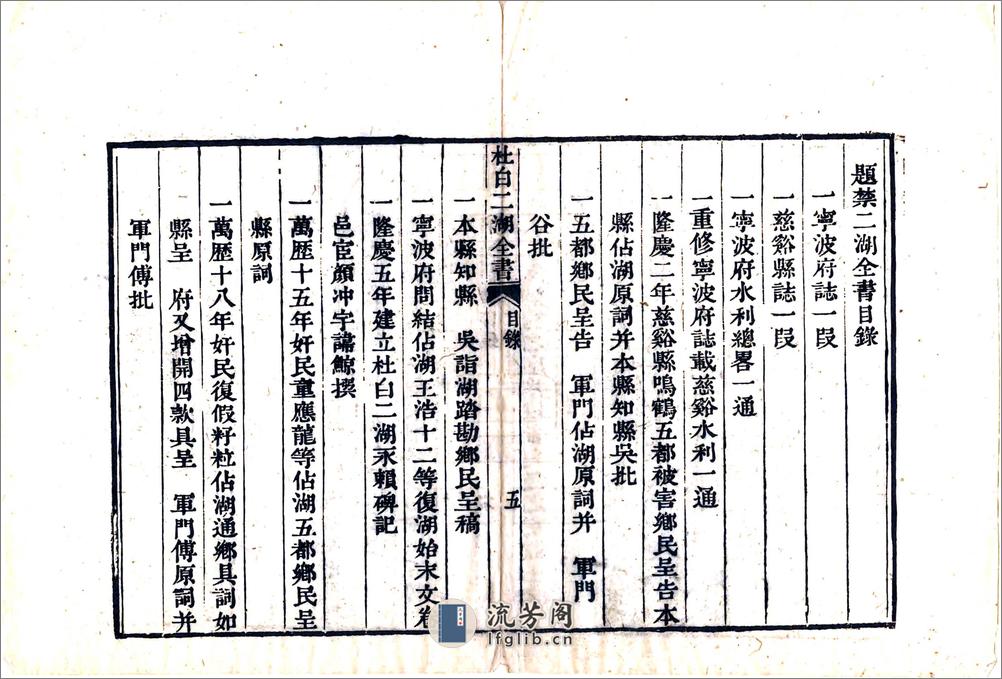 題禁二湖全書目錄
一寧波府誌一段
一慈谿縣誌一段
一寧波府水利總畧一通
一重修寧波府誌載慈谿水利一通
一隆慶二年慈谿縣鳴鶴五都被害鄉民呈告本
縣佔湖原詞并本縣知縣吳批
一五都鄉民呈告　軍門佔湖原詞并　軍門
谷批
杜白二湖全書　目錄　五
一本縣知縣　吳詣湖踏勘鄉民呈稿
一寧波府問結佔湖王浩十二等復湖始末文卷
一隆慶五年建立杜白二湖永賴碑記
邑宦顏冲宇諱鯨撰
一萬歷十五年奸民童應龍等佔湖五都鄉民呈
縣原詞
一萬歷十八年奸民復假籽粒佔湖通鄉具詞如
縣呈　府又增開四款具呈　軍門傅原詞并
軍門傅批
流芳阁
lfglib.cn